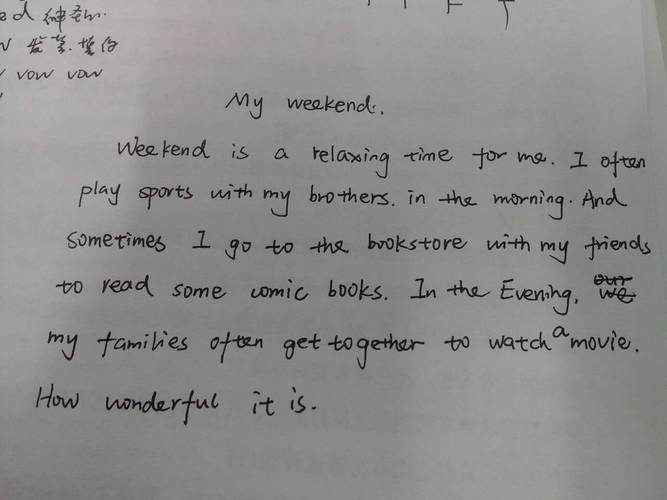 ed 神圣的.
w 发誓.誓约
vow vow
My weekend.
Weekend is a relaxing time for me. I often
play sports with my brothers. in the morning. And
sometimes I go to the bookstore with my friends
to read some comic books. In the Evening, our we
my families often get together to watch a movie.
How wonderful it is.